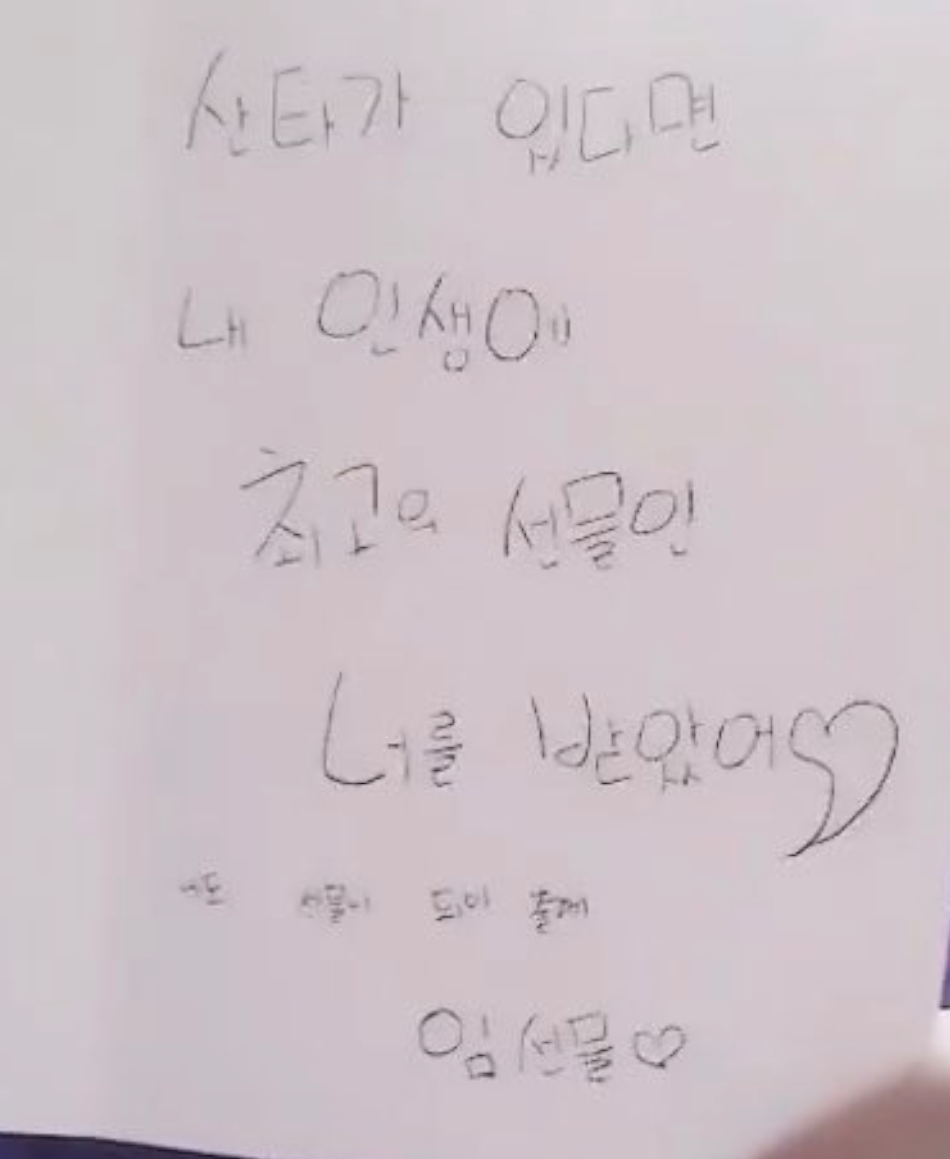 산타가 있다면
내 인생에
최고의 선물인
너를 받았어♡
너도 선물이 되어 줄게
임선물♡